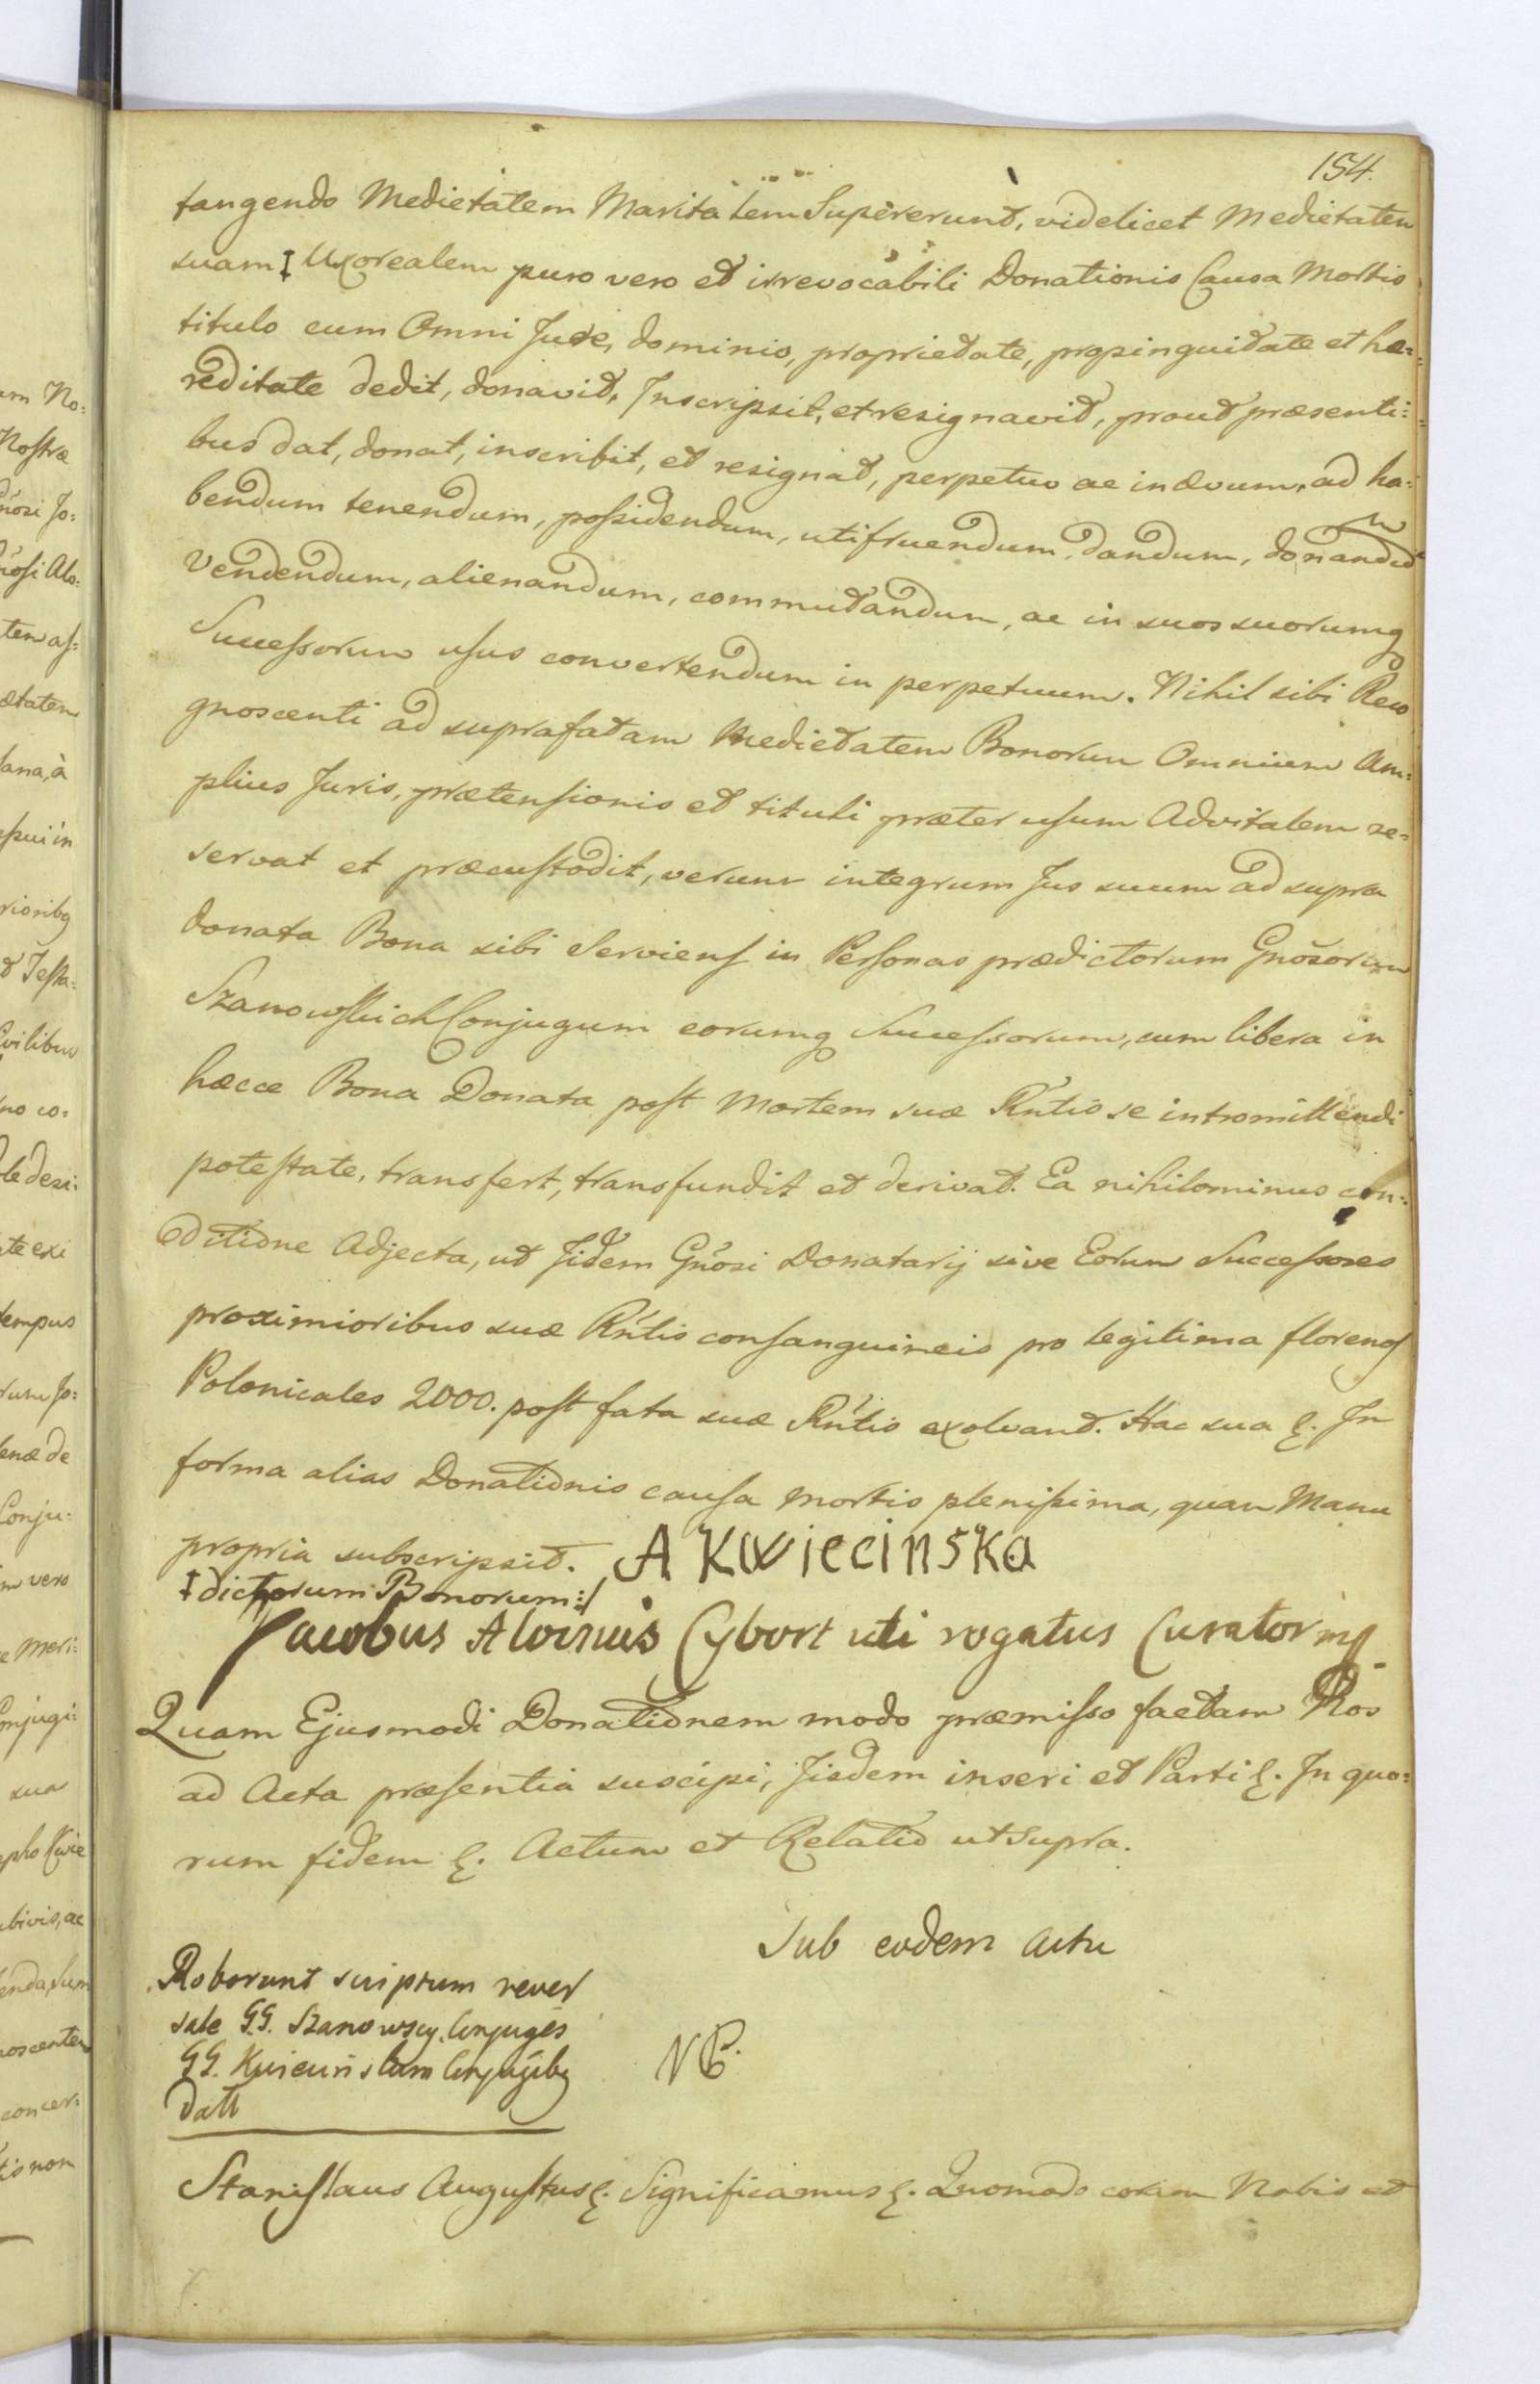 154.
tangendo Medietatem Maritalem Supererunt, videlicet Medietatem
suam ‡ Uxorealem puro vero et irrevocabili Donationis Causa Mortis
titulo cum Omni Jure, dominio, proprietate, propinquitate et hæ=
reditate dedit, donavit, Inscripsit, et resignavit, prout præsenti=
bus dat, donat, inscribit, et resignat, perpetuo ac in ævum, ad ha=
bendum tenendum, possidendum, utifruendum, dandum, donandum
vendendum, alienandum, commutandum, ac in suos suorumq
Successorum usus convertendum in perpetuum. Nihil sibi Reco
gnoscenti ad suprafatam Medietatem Bonorum Omnium Am=
plius Juris, prætensionis et tituli præter usum Advitalem re=
servat et præcustodit, verum integrum Jus suum ad supra
donata Bona sibi Serviens in Personas prædictorum Gnosorum
Szanowskich Conjugum eorumq Successorum, cum libera in
hæcce Bona Donata post Mortem suæ Rntis se intromittendi
potestate, transfert, transfundit et derivat. Ea nihilominus con=
ditione Adjecta, ut Jidem Gnosi Donatarij sive Eorum Successores
proximioribus suæ Rntis consanguineis pro legitima florenos
Polonicales 2000. post fata suæ Rntis exolvant. Hac sua &. In
forma alias Donationis causa mortis plenissima, quam Manu
propria subscripsit. A Kwiecinska
‡ dictorum Bonorum:/
Jacobus Aloinus Cybort uti rogatus Curator mp
Quam Ejusmodi Donationem modo præmisso factam Nos
ad Acta præsentia suscipi, Jisdem inseri et Parti &. In quo=
rum fidem &. Actum et Relatio ut supra.
Sub eodem Actu
Roborant scriptum rever
sale GG. Szanowscy Conjuges
GG. Conjugibq
datt
NP.
Stanislaus Augustus &. Significamus &. Quomodo coram Nobis et